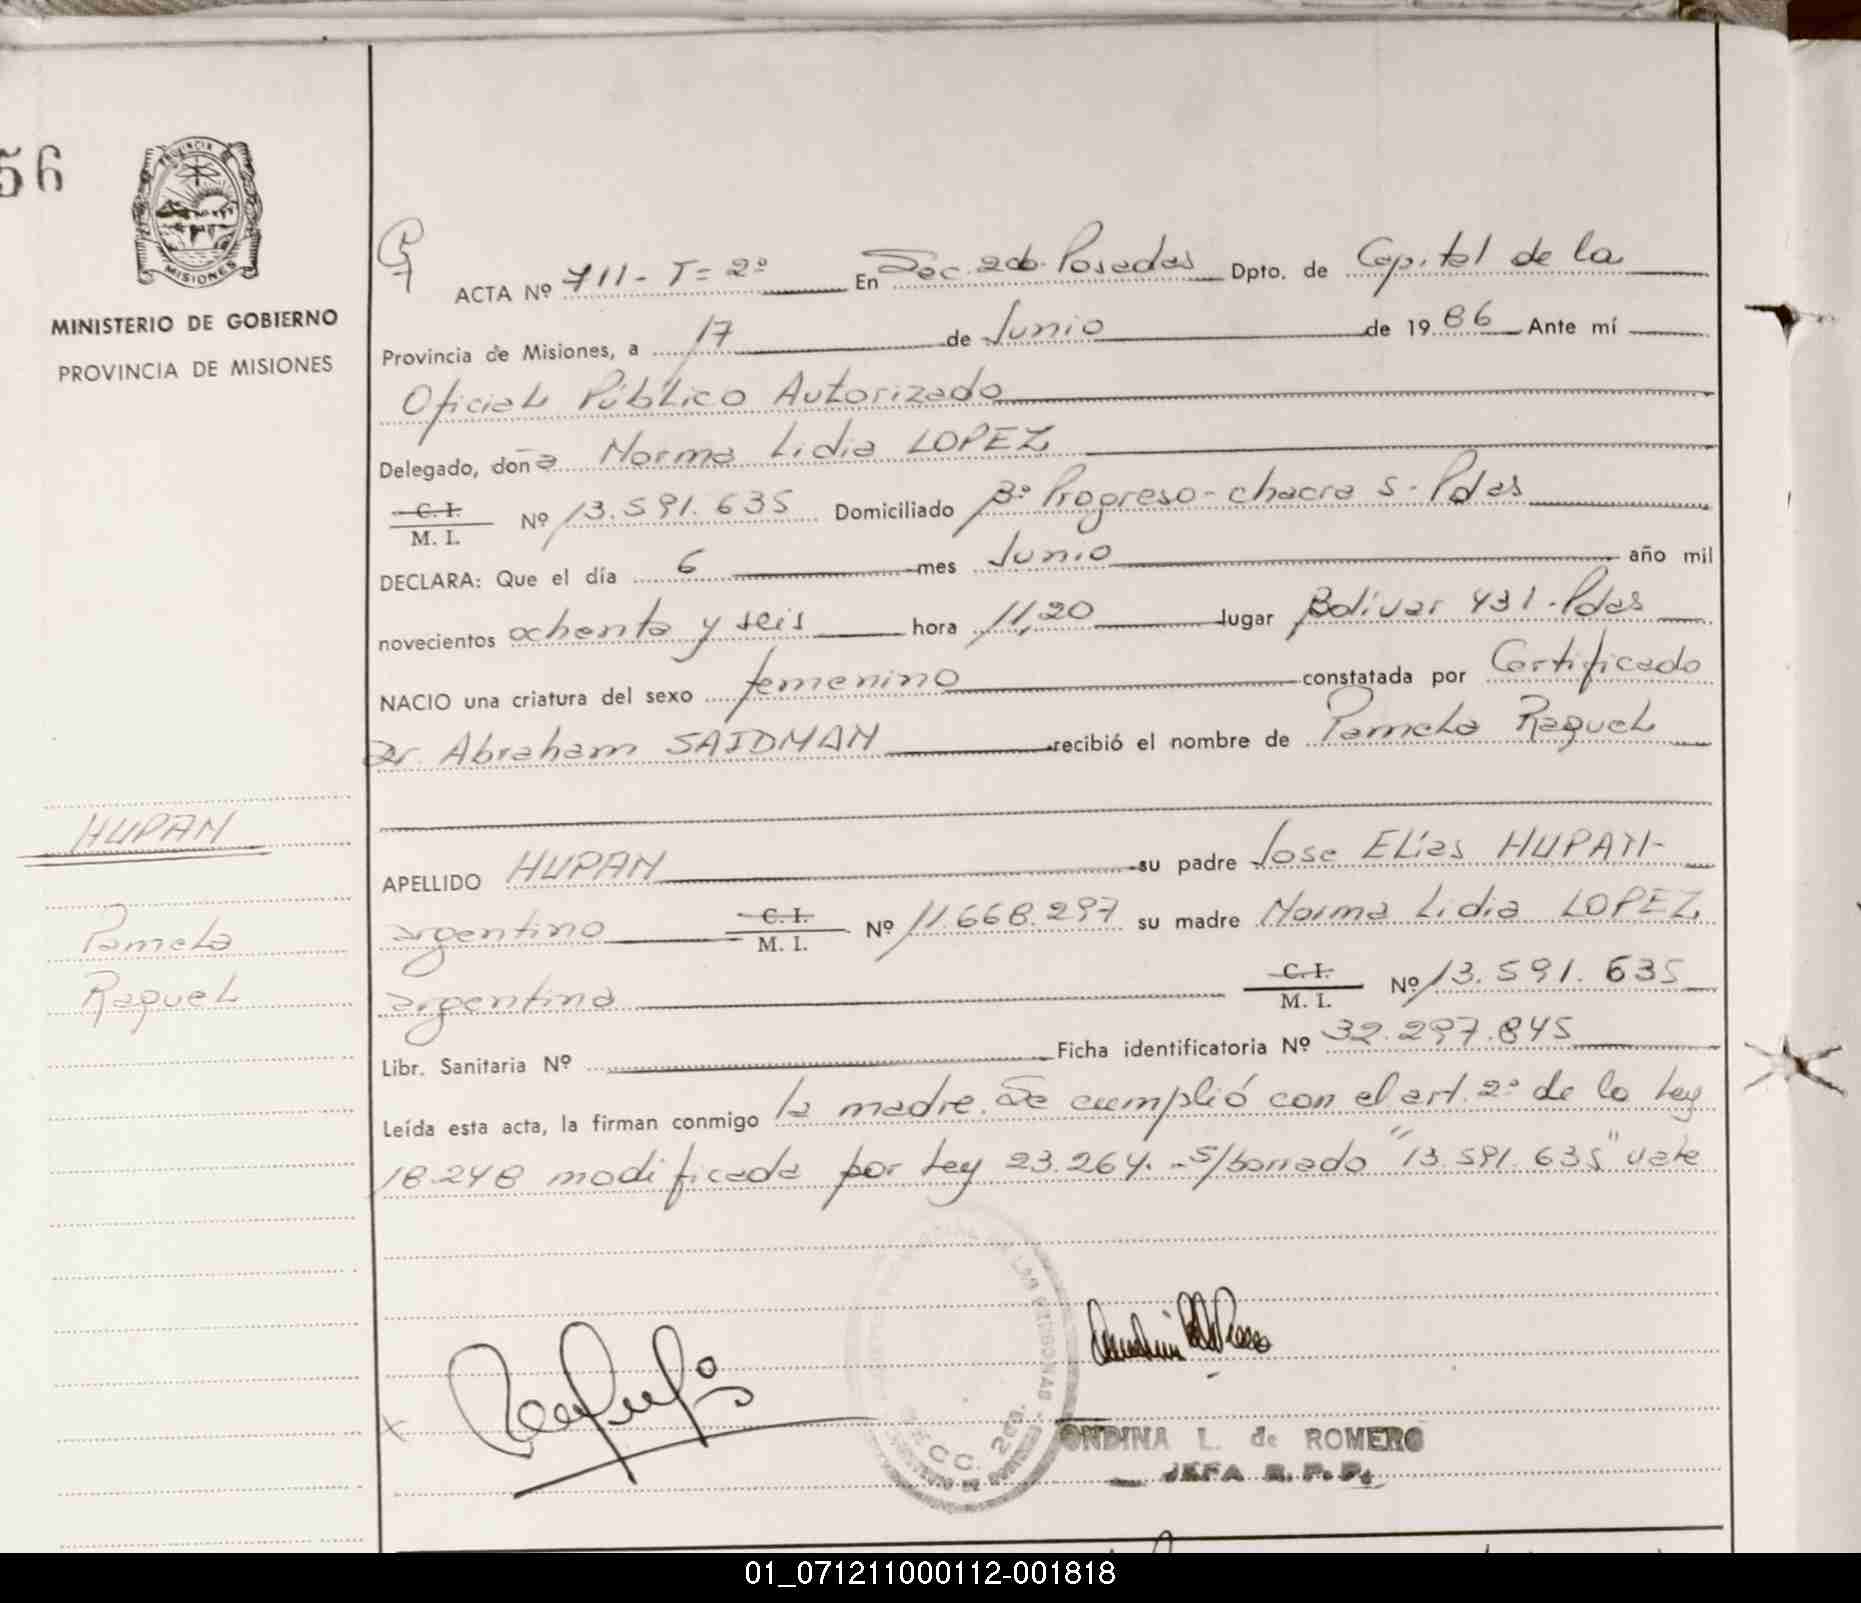 56
PROVINCIA
MISIONES
MINISTERIO DE GOBIERNO
PROVINCIA DE MISIONES
ACTA Nº 711 - T = 2º En Sec. 2da. Posadas Dpto. de Capital de la
Provincia de Misiones, a 17 de Junio de 1986 Ante mí
Oficial Público Autorizado
Delegado, doña Norma Lidia LOPEZ
C. I.
M. I. Nº 13.591.635 Domiciliado Bº Progreso - chacra 5 - Pdas
DECLARA: Que el día 6 mes Junio año mil
novecientos ochenta y seis hora 11,20 lugar Bolívar 431 - Pdas
NACIO una criatura del sexo femenino constatada por Certificado
Dr. Abraham SAIDMAN recibió el nombre de Pamela Raquel
HUPAN
APELLIDO HUPAN su padre Jose Elías HUPAN -
Pamela
argentino C. I. M. I. Nº 11.668.297 su madre Norma Lidia LOPEZ
Raquel
argentina C. I. M. I. Nº 13.591.635
Libr. Sanitaria Nº Ficha identificatoria Nº 32.297.845
Leída esta acta, la firman conmigo la madre. Se cumplió con el art. 2º de la Ley
18.248 modificada por Ley 23.264. - S/borrado "13.591.635" vale
SECC. 2da.
ONDINA L. de ROMERO
JEFA R. P. P.
01_071211000112-001818